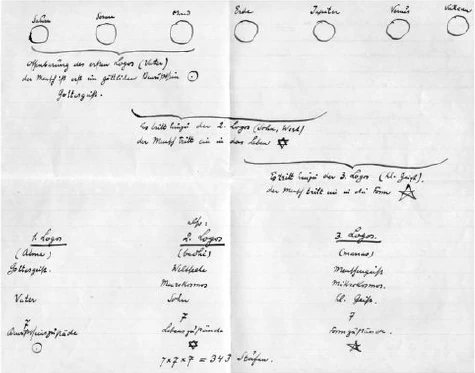 Saturn Sonne Mond Erde Jupiter Venus Vulkan
Offenbarung des ersten Logos (Vater)
der Mensch ist erst im göttlichen Bewußtsein
Gottesgeist.
Es tritt hinzu der 2. Logos (Sohn, Wort)
der Mensch tritt ein in das Leben
Es tritt hinzu der 3. Logos (hl. Geist).
der Mensch tritt ein in die Form
Also:
1. Logos 2. Logos 3. Logos.
(Atma) (Budhi) (manas)
Gottesgeist Weltseele Menschengeist
Makrokosmos Mikrokosmos
Vater Sohn hl. Geist.
7 7 7
Bewußtseinszustände Lebenszustände Formzustände.
7 x 7 x 7 = 343 Stufen.